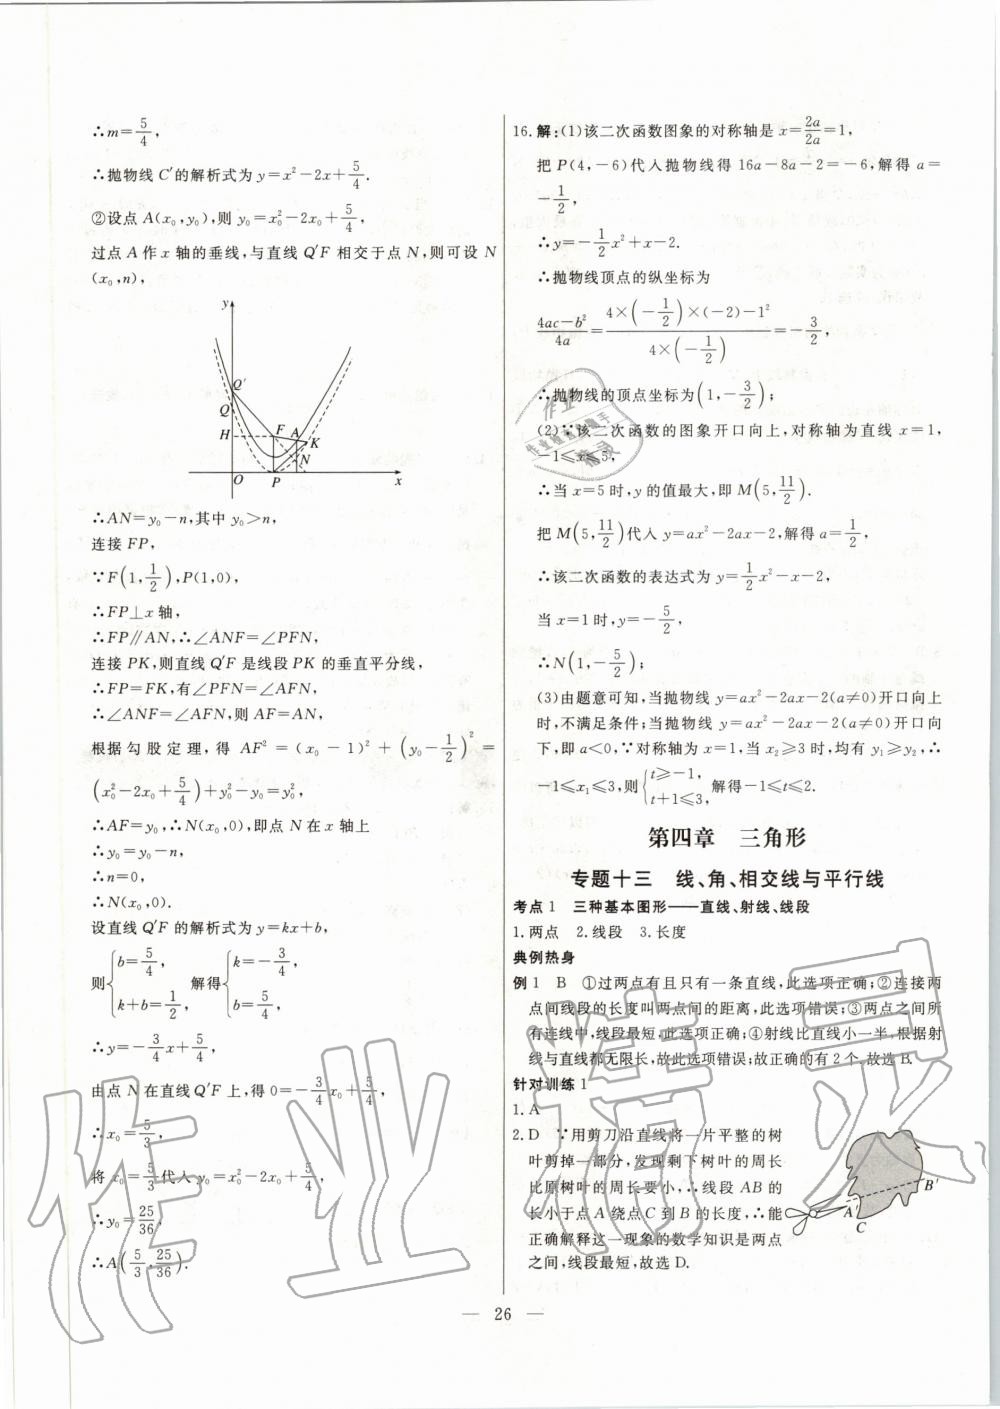 ∴m=5/4，
∴抛物线C′的解析式为y=x²−2x+5/4.
②设点A(x₀,y₀)，则y₀=x₀²−2x₀+5/4，
过点A作x轴的垂线，与直线Q′F相交于点N，则可设N
(x₀,n)，
y
Q′
Q
H
F
A
K
N
O
P
x
∴AN=y₀−n，其中y₀>n，
连接FP，
∵F(1,1/2)，P(1,0)，
∴FP⊥x轴，
∴FP∥AN，∴∠ANF=∠PFN，
连接PK，则直线Q′F是线段PK的垂直平分线，
∴FP=FK，有∠PFN=∠AFN，
∴∠ANF=∠AFN，则AF=AN，
根据勾股定理，得AF²=(x₀−1)²+(y₀−1/2)²=
(x₀²−2x₀+5/4)+y₀²−y₀=y₀²，
∴AF=y₀，∴N(x₀,0)，即点N在x轴上
∴y₀=y₀−n，
∴n=0，
∴N(x₀,0).
设直线Q′F的解析式为y=kx+b，
则{b=5/4，k+b=1/2，解得{k=−3/4，b=5/4，
∴y=−3/4x+5/4，
由点N在直线Q′F上，得0=−3/4x₀+5/4，
∴x₀=5/3，
将x₀=5/3代入y₀=x₀²−2x₀+5/4，
∴y₀=25/36，
∴A(5/3,25/36).
16.解：(1)该二次函数图象的对称轴是x=2a/2a=1，
把P(4,−6)代入抛物线得16a−8a−2=−6，解得a=
−1/2，
∴y=−1/2x²+x−2.
∴抛物线顶点的纵坐标为
(4ac−b²)/4a=(4×(−1/2)×(−2)−1²)/(4×(−1/2))=−3/2，
∴抛物线的顶点坐标为(1,−3/2)；
(2)∵该二次函数的图象开口向上，对称轴为直线x=1，
−1≤x≤5，
∴当x=5时，y的值最大，即M(5,11/2).
把M(5,11/2)代入y=ax²−2ax−2，解得a=1/2，
∴该二次函数的表达式为y=1/2x²−x−2，
当x=1时，y=−5/2，
∴N(1,−5/2)；
(3)由题意可知，当抛物线y=ax²−2ax−2(a≠0)开口向上
时，不满足条件；当抛物线y=ax²−2ax−2(a≠0)开口向
下，即a<0，∵对称轴为x=1，当x₂≥3时，均有y₁≥y₂，∴
−1≤x₁≤3，则{t≥−1，t+1≤3，解得−1≤t≤2.
第四章 三角形
专题十三 线、角、相交线与平行线
考点1 三种基本图形——直线、射线、线段
1.两点 2.线段 3.长度
典例热身
例1 B ①过两点有且只有一条直线，此选项正确；②连接两
点间线段的长度叫两点间的距离，此选项错误；③两点之间所
有连线中，线段最短，此选项正确；④射线比直线小一半，根据射
线与直线都无限长，故此选项错误；故正确的有2个，故选B.
针对训练1
1.A
2.D ∵用剪刀沿直线将一片平整的树
叶剪掉一部分，发现剩下树叶的周长
比原树叶的周长要小，∴线段AB的
长小于点A绕点C到B的长度，∴能
正确解释这一现象的数学知识是两点
之间，线段最短，故选D.
A
B
C
— 26 —
作业精灵